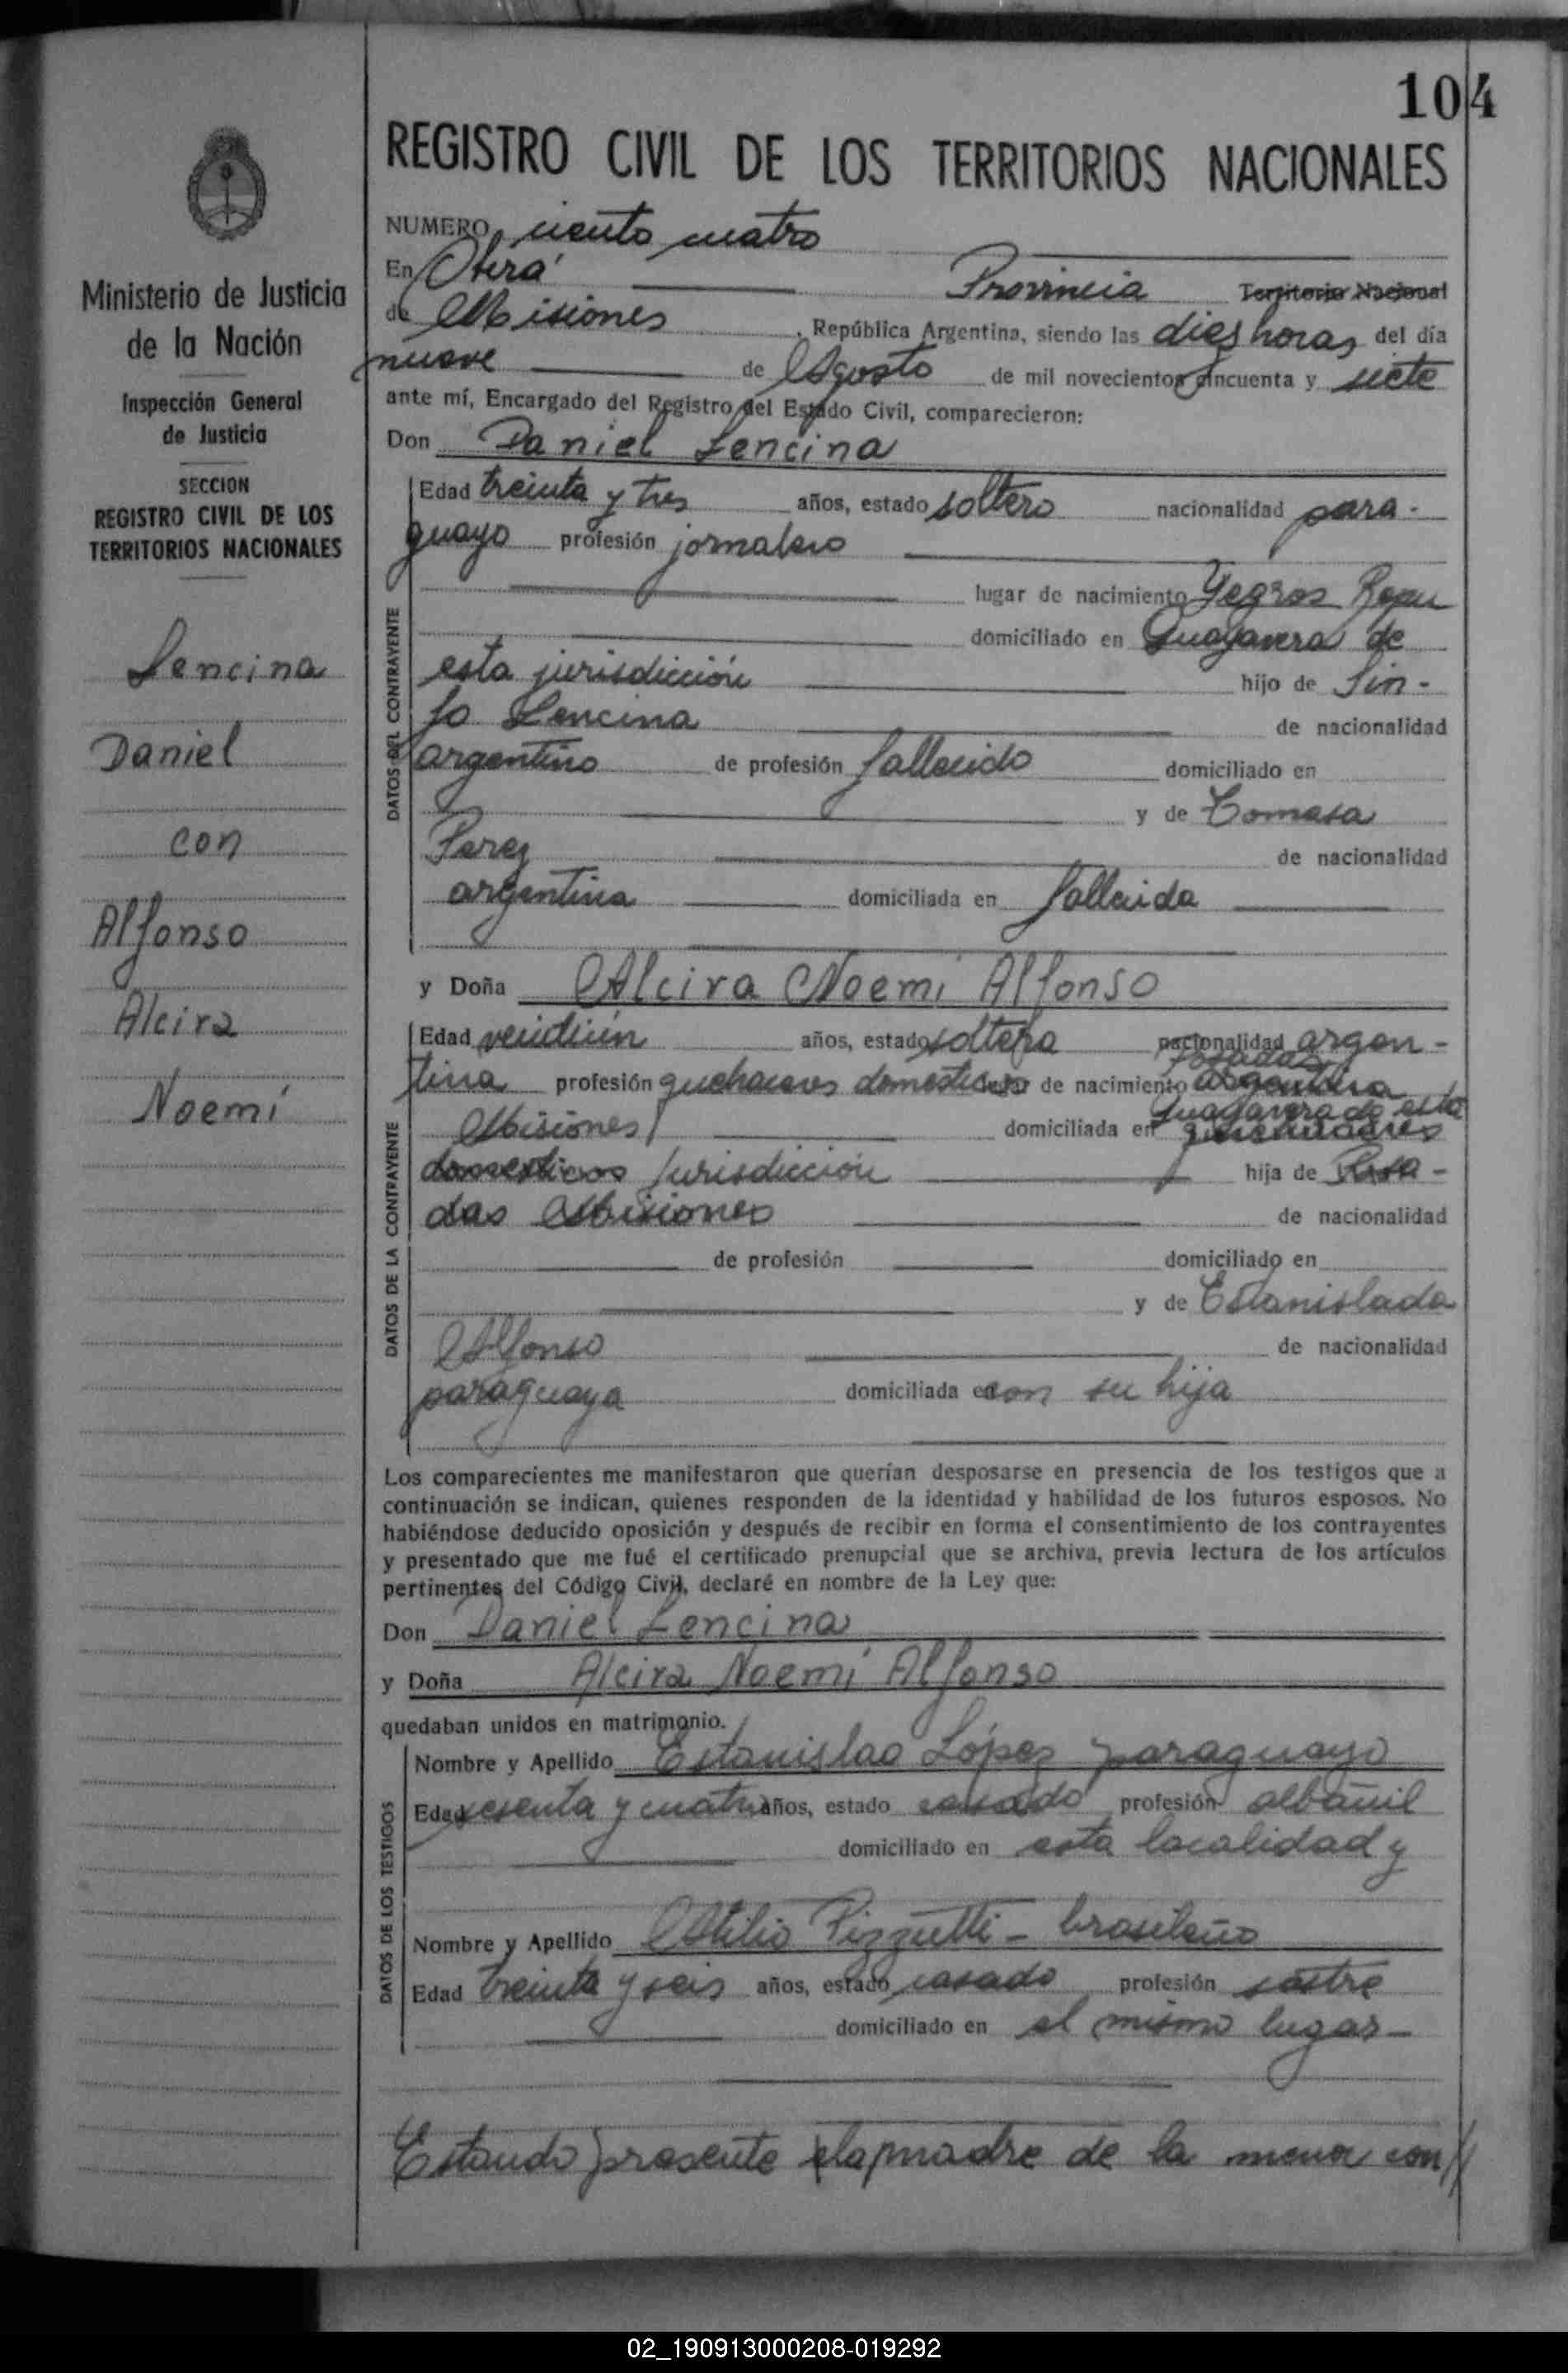 104
REGISTRO CIVIL DE LOS TERRITORIOS NACIONALES
Ministerio de Justicia
de la Nación
Inspección General
de Justicia
SECCION
REGISTRO CIVIL DE LOS
TERRITORIOS NACIONALES
Lencina
Daniel
con
Alfonso
Alcira
Noemí
NUMERO ciento cuatro
En Oberá Provincia Territorio Nacional
de Misiones , República Argentina, siendo las diez horas del día
nueve de Agosto de mil novecientos cincuenta y siete
ante mí, Encargado del Registro del Estado Civil, comparecieron:
Don Daniel Lencina
DATOS DEL CONTRAYENTE
Edad treinta y tres años, estado soltero nacionalidad para-
guayo profesión jornalero
lugar de nacimiento Yegros Repu
domiciliado en Guayavera de
esta jurisdicción hijo de Sin-
fo Lencina de nacionalidad
argentino de profesión fallecido domiciliado en
y de Tomasa
Perez de nacionalidad
argentina domiciliada en fallecida
y Doña Alcira Noemi Alfonso
DATOS DE LA CONTRAYENTE
Edad veintiún años, estado soltera nacionalidad argen-
tina profesión quehaceres domesticos lugar de nacimiento Posadas argentina
Misiones domiciliada en Guayavera de esta quehaceres
domesticos jurisdicción hija de Posa-
das Misiones de nacionalidad
de profesión domiciliado en
y de Estanislada
Alfonso de nacionalidad
paraguaya domiciliada en con su hija
Los comparecientes me manifestaron que querían desposarse en presencia de los testigos que a
continuación se indican, quienes responden de la identidad y habilidad de los futuros esposos. No
habiéndose deducido oposición y después de recibir en forma el consentimiento de los contrayentes
y presentado que me fué el certificado prenupcial que se archiva, previa lectura de los artículos
pertinentes del Código Civil, declaré en nombre de la Ley que:
Don Daniel Lencina
y Doña Alcira Noemí Alfonso
quedaban unidos en matrimonio.
DATOS DE LOS TESTIGOS
Nombre y Apellido Estanislao López paraguayo
Edad sesenta y cuatro años, estado casado profesión albañil
domiciliado en esta localidad y
Nombre y Apellido Atilio Pizzutti - brasileño
Edad treinta y seis años, estado casado profesión sastre
domiciliado en el mismo lugar-
Estando presente la madre de la menor con//
02_190913000208-019292